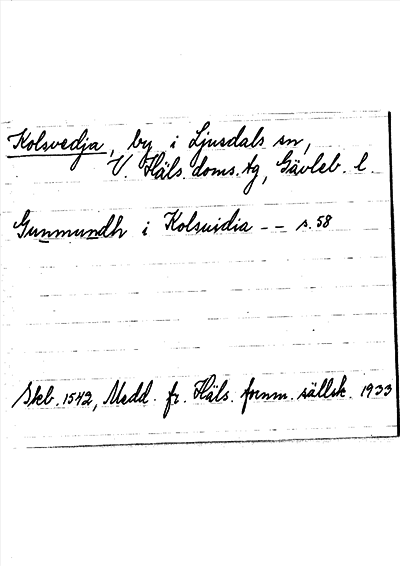 Kolsvedja, by i Ljusdals sn,
V. Häls. doms. tg, Gävleb. l.
Gunmundh i Kolsuidia -- s. 58
Skb. 1542, Medd. fr. Häls. fornm. sällsk. 1933